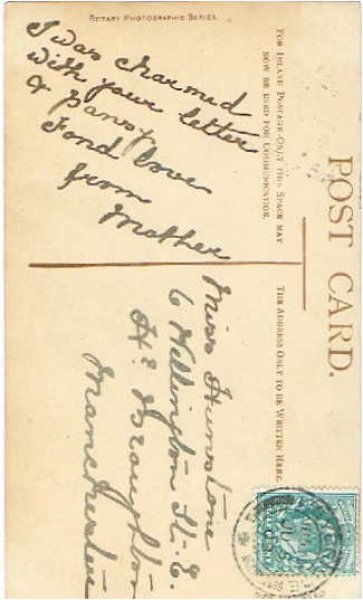 ROTARY PHOTOGRAPHIC SERIES.
POST CARD.
FOR INLAND POSTAGE ONLY THIS SPACE MAY
NOW BE USED FOR COMMUNICATION.
THE ADDRESS ONLY TO BE WRITTEN HERE.
I was charmed
with your letter
& pansy
Fond love
from
Mother
Miss Hunstone
6 Wellington St. E.
Hr. Broughton
Manchester